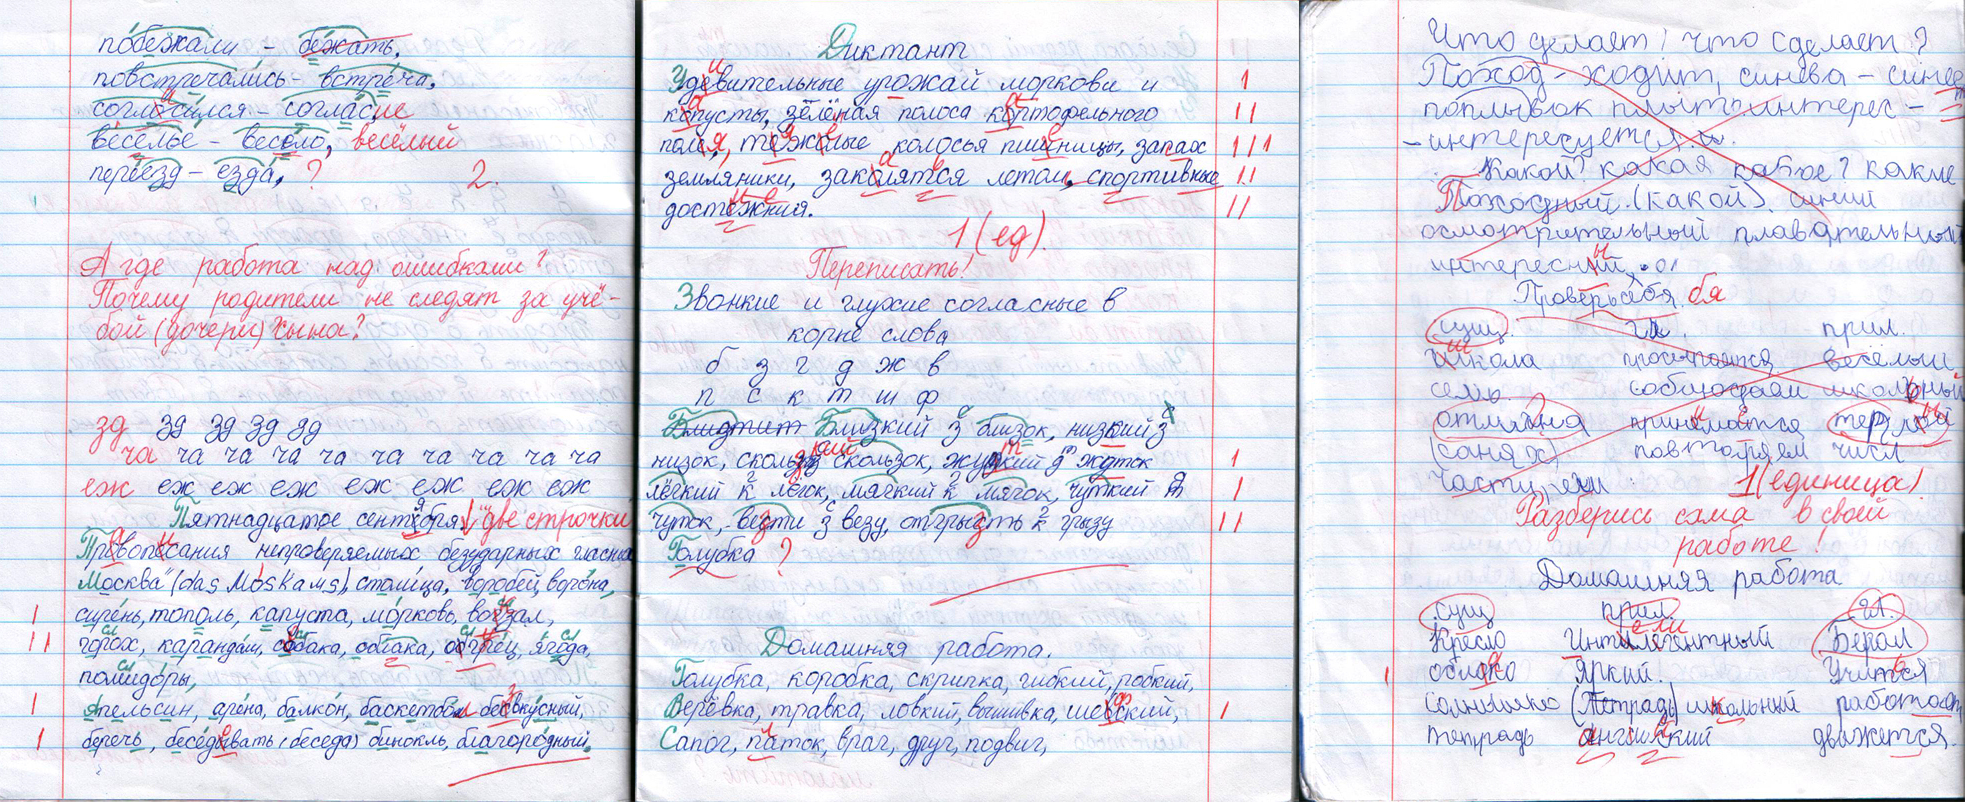 побежали - бежать,
повстречались - встреча,
согласился - согласие
веселье - весело, весёлый
переезд - езда, ? 2.
А где работа над ошибками?
Почему родители не следят за учё-
бой (дочери) сына?
зд зд зд зд зд
ча ча ча ча ча ча ча ча ча ча
еж еж еж еж еж еж еж еж
Пятнадцатое сентября две строчки
Правописания непроверяемых безударных
Москва (das столица, воробей, ворона,
сирень, тополь, капуста, морковь, вокзал,
горох, карандаш, собака, огурец, ягода,
помидоры,
Апельсин, арена, балкон, баскетбол безвкусный,
беречь, беседовать (беседа) бинокль, благородный.
Диктант
Удивительные урожай моркови и
капусты, зелёная полоса картофельного
поля, колосья пшеницы, запах
земляники, летом, спортивные
достижения.
1 (ед).
Переписать!
Звонкие и глухие согласные в
корне слова
б з г д ж в
п с к т ш ф
Близкий з близок, низкий з
низок, скользок, жуткий жуток
лёгкий к легок, мягкий к мягок, чуткий
чуток, - везти з везу, отгрызть к грызу
Голубка ?
Домашняя работа.
Голубка, коробка, скрипка, гибкий, робкий,
Верёвка, травка, ловкий, вышивка,
Сапог, паток, врач, друг, подвиг,
Что делает? что сделает?
Поход - ходит, синева - синеет
поплывок интерес -
- интересуется.
Какой? какая какое? какие
Походный. (какой). синий
осмотрительный плавательный
интересный
Проверь себя бя
сущ. гл. прил.
Школа весёлый
соблюдаем школьный
принимается
повторяем числ
части речи 1 (единица).
Разберись сама в своей
работе!
Домашняя работа
сущ прил. гл.
Кресло Интилегентный Берал
облако Яркий. Учиться
солнышко (Тетрадь) школьный работает
тетрадь английский движется.